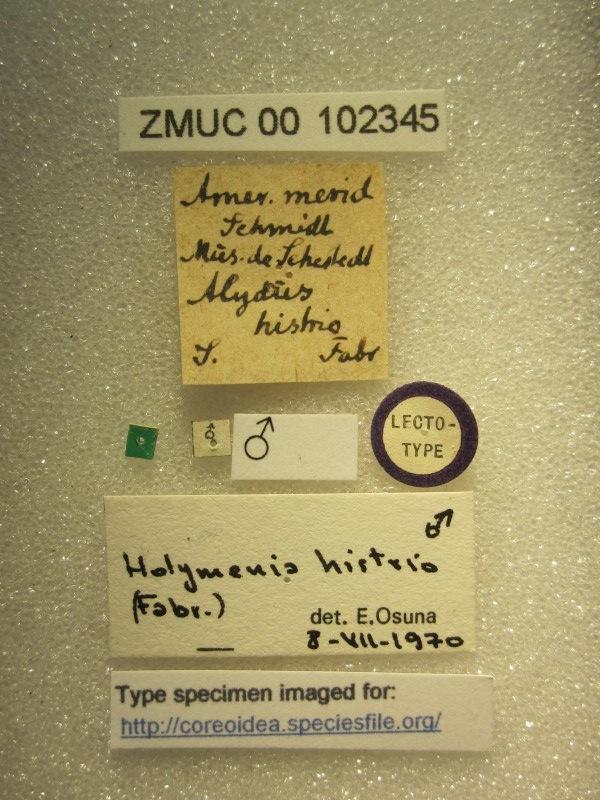 ZMUC 00 102345
Amer. merid
Schmidt
Mus. de Sehestedt
Alydus
histrio
S. Fabr
♂
♂
LECTO-
TYPE
♂
Holymenia histrio
(Fabr.)
det. E.Osuna
8-VII-1970
Type specimen imaged for:
http://coreoidea.speciesfile.org/